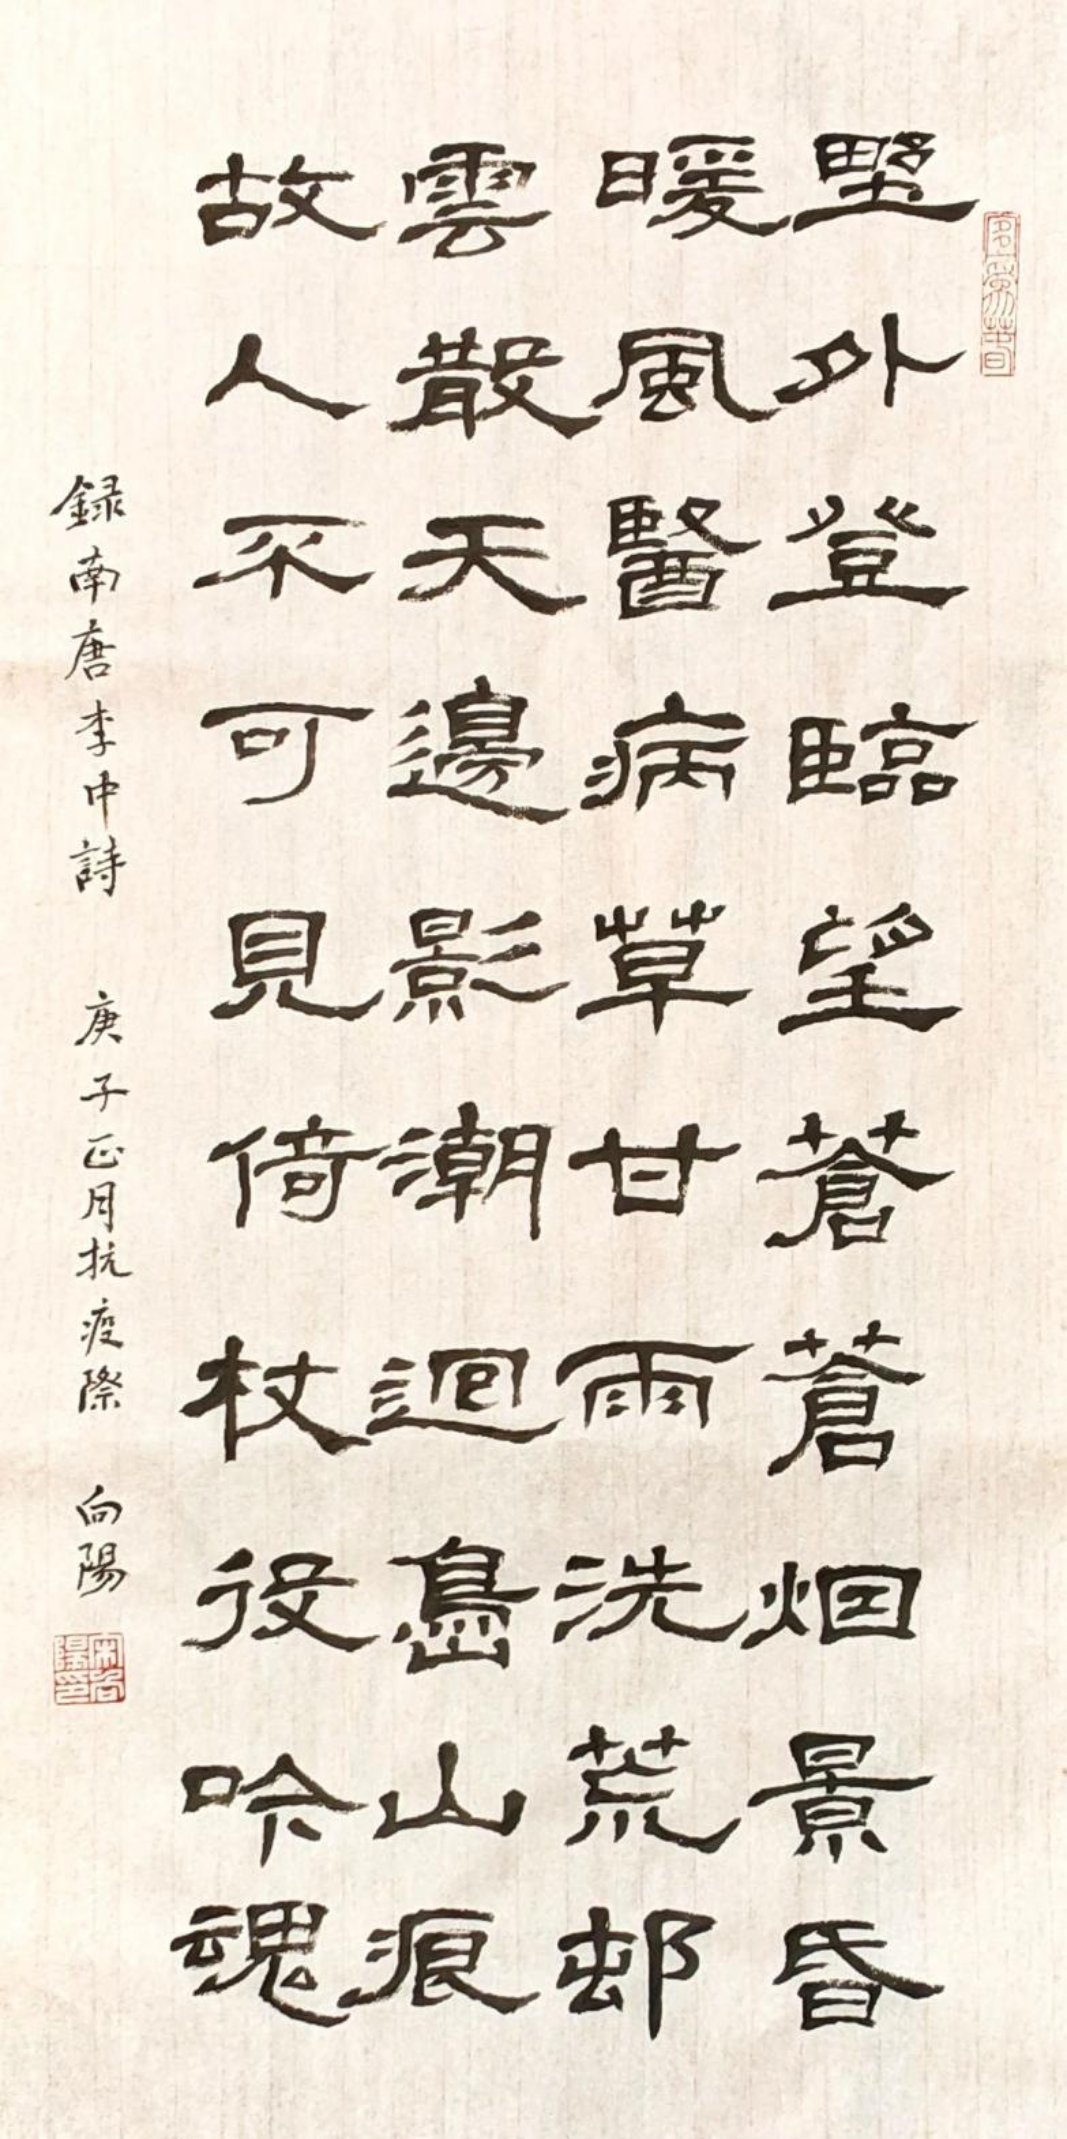 野外登臨望蒼蒼烟景昏
暖風醫病草甘雨洗荒邨
雲散天邊影潮迴島山痕
故人不可見倚杖役吟魂
録南唐李中詩 庚子正月抗疫際 向陽